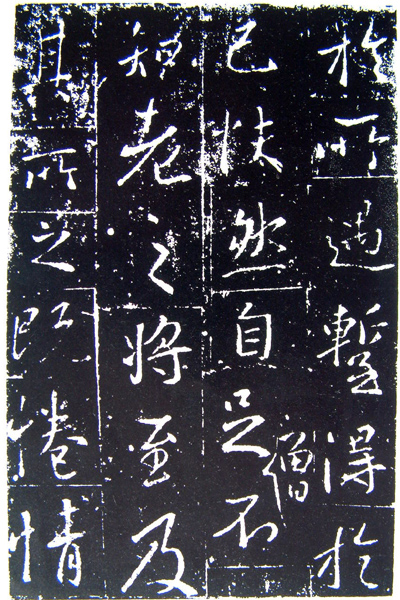 於所遇暫得於
己快然自足不
僧
知老之將至及
其所之既惓情